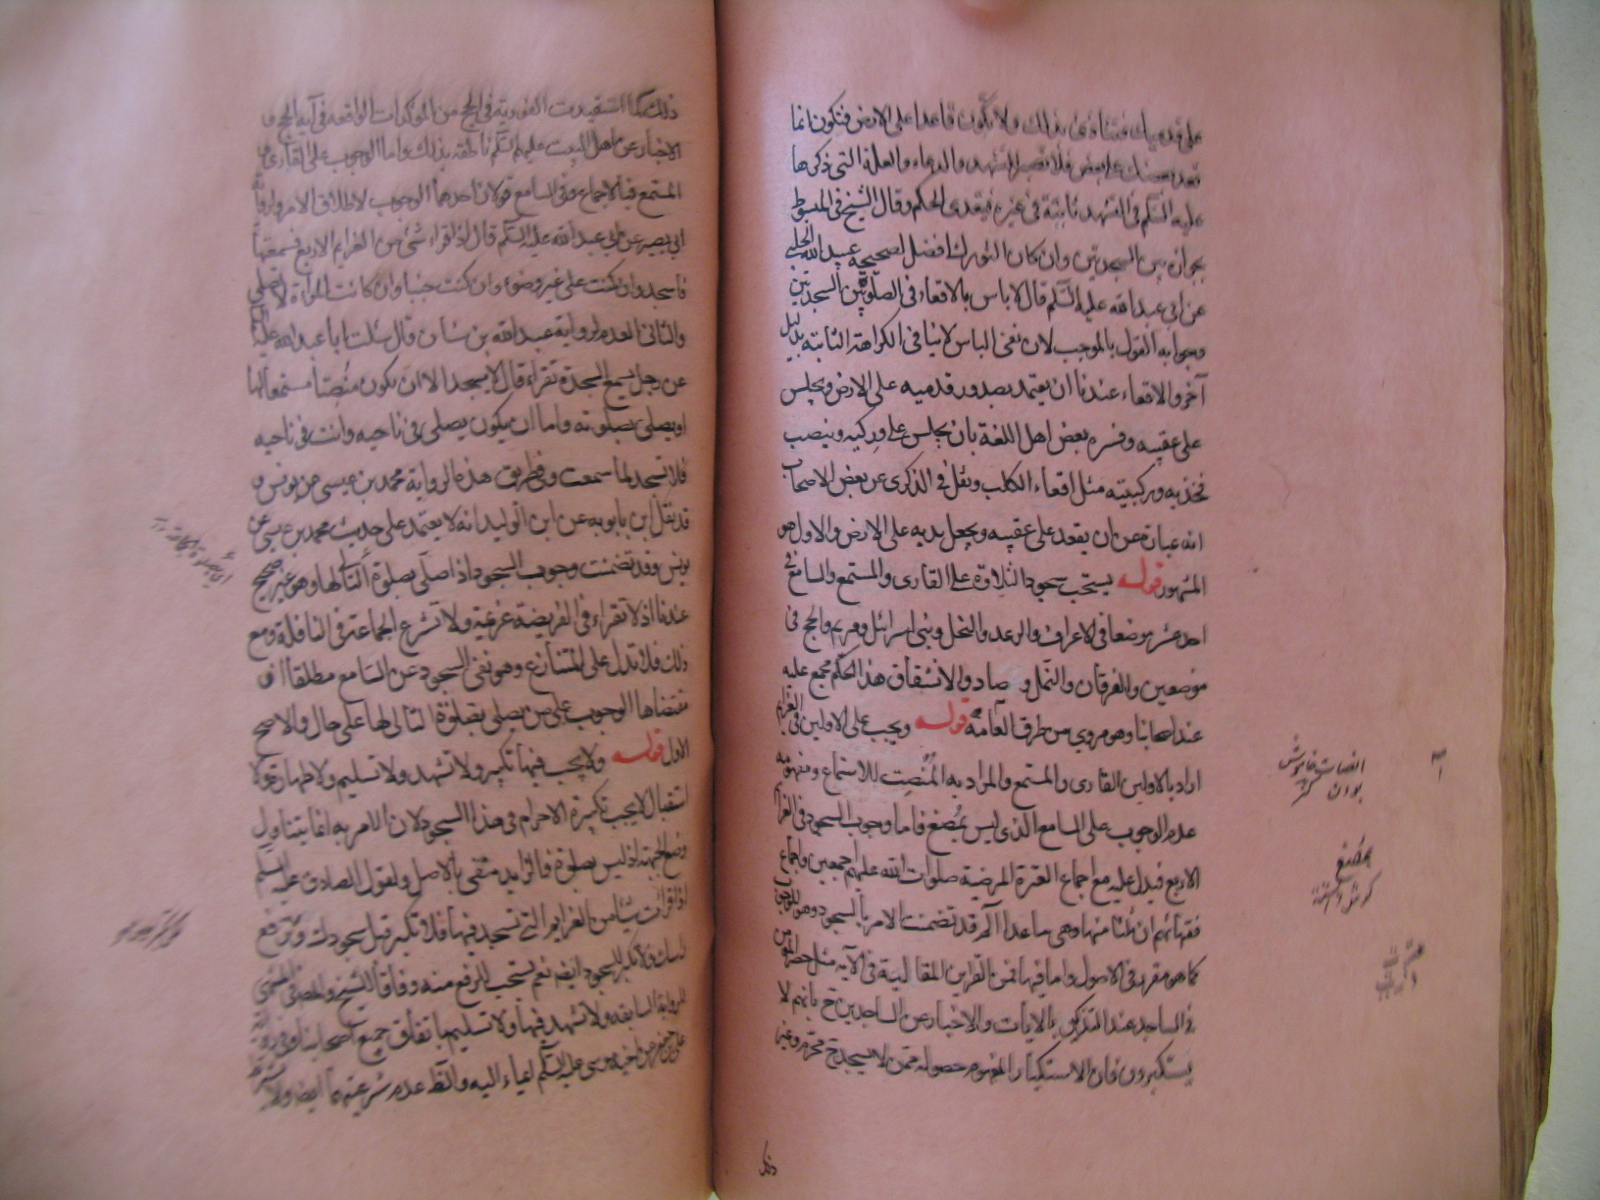 على قدميك فتتأذى بذلك ولا تكون قاعدا على الارض فتكون انما
قعد بعضك على بعض فلا تصبر للتشهد والدعاء والعلة التى ذكرها
عليه السلم فى التشهد ثابتة فى غيره فيتعدى الحكم وقال الشيخ فى المبسوط
بجوازه بين السجدتين وان كان التورك افضل لصحيحه عبيد الله الحلبى
عن ابى عبد الله عليه السلم قال لا باس بالاقعاء فى الصلوة بين السجدتين
وجوابه القول بالموجب لان نفى الباس لا ينافى الكراهة الثابته بدليل
آخر والاقعاء عندنا ان يعتمد بصدور قدميه على الارض ويجلس
على عقبيه وفسره بعض اهل اللغة بان يجلس على وركيه وينصب
فخذيه وركبتيه مثل اقعاء الكلب ونقل فى الذكرى عن بعض الاصحاب
انه عبارة عن ان يقعد على عقبيه ويجعل يديه على الارض والاول هو
المشهور قوله يستحب سجود التلاوة على القارى والمستمع والسامع فى
احد عشر موضعا فى الاعراف والرعد والنحل وبنى اسرائل ومريم والحج فى
موضعين والفرقان والنمل و صاد والانشقاق هذا الحكم مجمع عليه
عند اصحابنا وهو مروي من طرق العامه قوله ويجب على الاولين فى العزايم
اراد بالاولين القارى والمستمع والمراد به المُنْصِت للاستماع ومفهومه
عدم الوجوب على السامع الذى ليس بمُصْغ فاما وجوب السجود فى العزايم
الاربع فيدل عليه مع اجماع العترة المرضية صلوات الله عليهم اجمعين واجماع
فقهائهم ان ثلثا منها وهى ما عدا الم قد تضمنت الامر بالسجود وهو للوجوب
كما هو مقرر فى الاصول واما فيها فمن القراين المقالية فى الآيه مثل حصر المؤمن
فى الساجد عند التذكير بالايات والاخبار عن الساجدين ح بانهم لا
يستكبرون فان الاستكبار المفهوم حصوله ممن لا يسجد ح محرم وغير
انصات خاموش
بودن
مصغ
ذلك
ذلك كما استفيدت الفورية فى الحج من المؤكدات الواقعه فى آية الحج و
الاخبار عن اهل البيت عليهم السلم ناطقه بذلك واما الوجوب على القارى و
المستمع فبالاجماع وفى السامع قولان احدهما الوجوب لاطلاق الامر ولرواية
ابى بصير عن ابى عبد الله عليه السلم قال اذا قراء شئ من العزايم الاربع فسمعتها
فاسجد وان كنت على غير وضوء وان كنت جنبا وان كانت المراة لا تصلى
والثانى العدم لرواية عبد الله بن سنان قال سئلت ابا عبد الله عليه السلم
عن رجل يسمع السجدة تقراء قال لا يسجد الا ان يكون منصتا مستمعا لها
او يصلى بصلوته واما ان يكون يصلى فى ناحيه وانت فى ناحيه
فلا تسجد لما سمعت وفى طريق هذه الرواية محمد بن عيسى عن يونس و
قد نقل ابن بابويه عن ابن الوليد انه لا يعتمد على حديث محمد بن عيسى عن
يونس وقد تضمنت وجوب السجود اذا صلى بصلوة التالى لها وهو غير صحيح
عندنا اذ لا تقراء فى الفريضة عزيمة ولا تشرع الجماعة فى النافلة ومع
ذلك فلا تدل على المتنازع وهو نفى السجود عن السامع مطلقا اذ
مقتضاها الوجوب على من يصلى بصلوة التالى لها على حال والاصح
الاول قوله ولا يجب فيها تكبير ولا تشهد ولا تسليم ولا طهارة ولا
استقبال لا يجب تكبيرة الاحرام فى هذا السجود لان الامر به انما يتناول
وضع الجبهة اذ ليس بصلوة فالزايد منتفى بالاصل ولقول الصادق عليه السلم
اذا قرات شيئا من العزايم التى تسجد فيها فلا تكبر قبل سجودك
ايضا نعم يستحب للرفع منه وفاقا للشيخ
للرواية السابقه ولا تشهد فيها ولا تسليم باتفاق جميع اصحابنا
على بن جعفر عن اخيه موسى عليه السلم ايماء اليه والظ عدم شرعيتهما ايضا